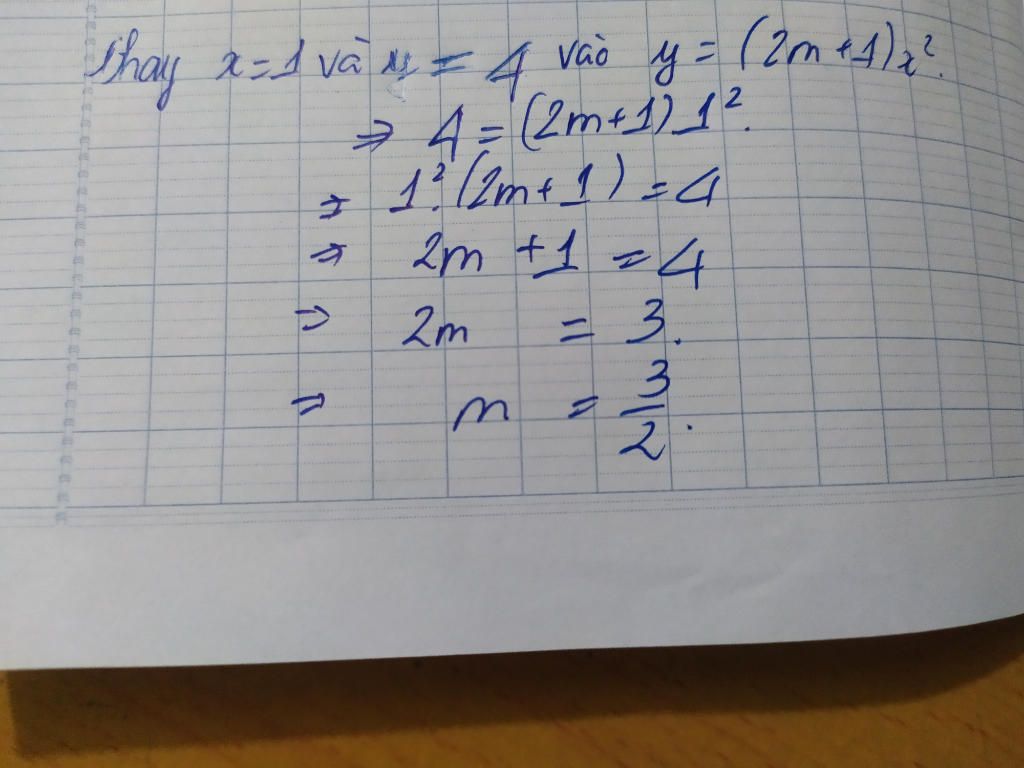 Thay x = 1 và y = 4 vào y = (2m + 1)x².
⇒ 4 = (2m+1) 1².
⇒ 1².(2m+1) = 4
⇒ 2m + 1 = 4
⇒ 2m = 3.
⇒ m = 3/2.